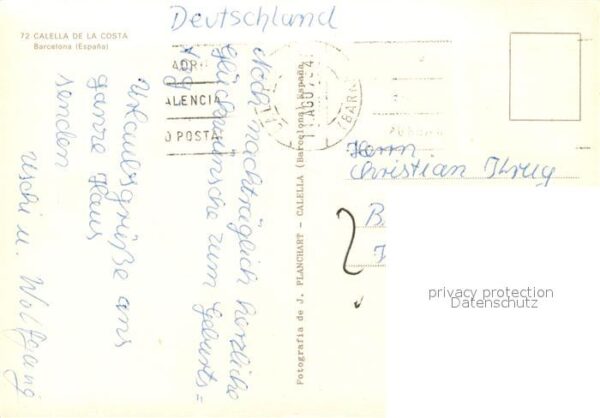 72 CALELLA DE LA COSTA
Barcelona (España)
Deutschland
Noch nachträglich herzliche
Glückwünsche zum Geburts=
tag
Urlaubsgrüße ans
ganze Haus
senden
Uschi u. Wolfgang
ADRI
ALENCIA
O POSTA
AGO
(BARN
Fotografia de J. PLANCHART - CALELLA (Barcelona) España
Herrn
Christian Krug
B
privacy protection
Datenschutz